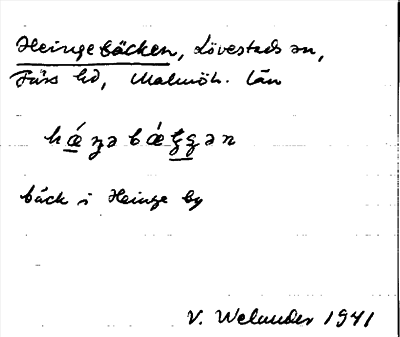 Heingebäcken, Lövestads sn,
Färs hd, Malmöh. län
hǽŋə bǽʒʒən
bäck i Heinge by
V. Welander 1941